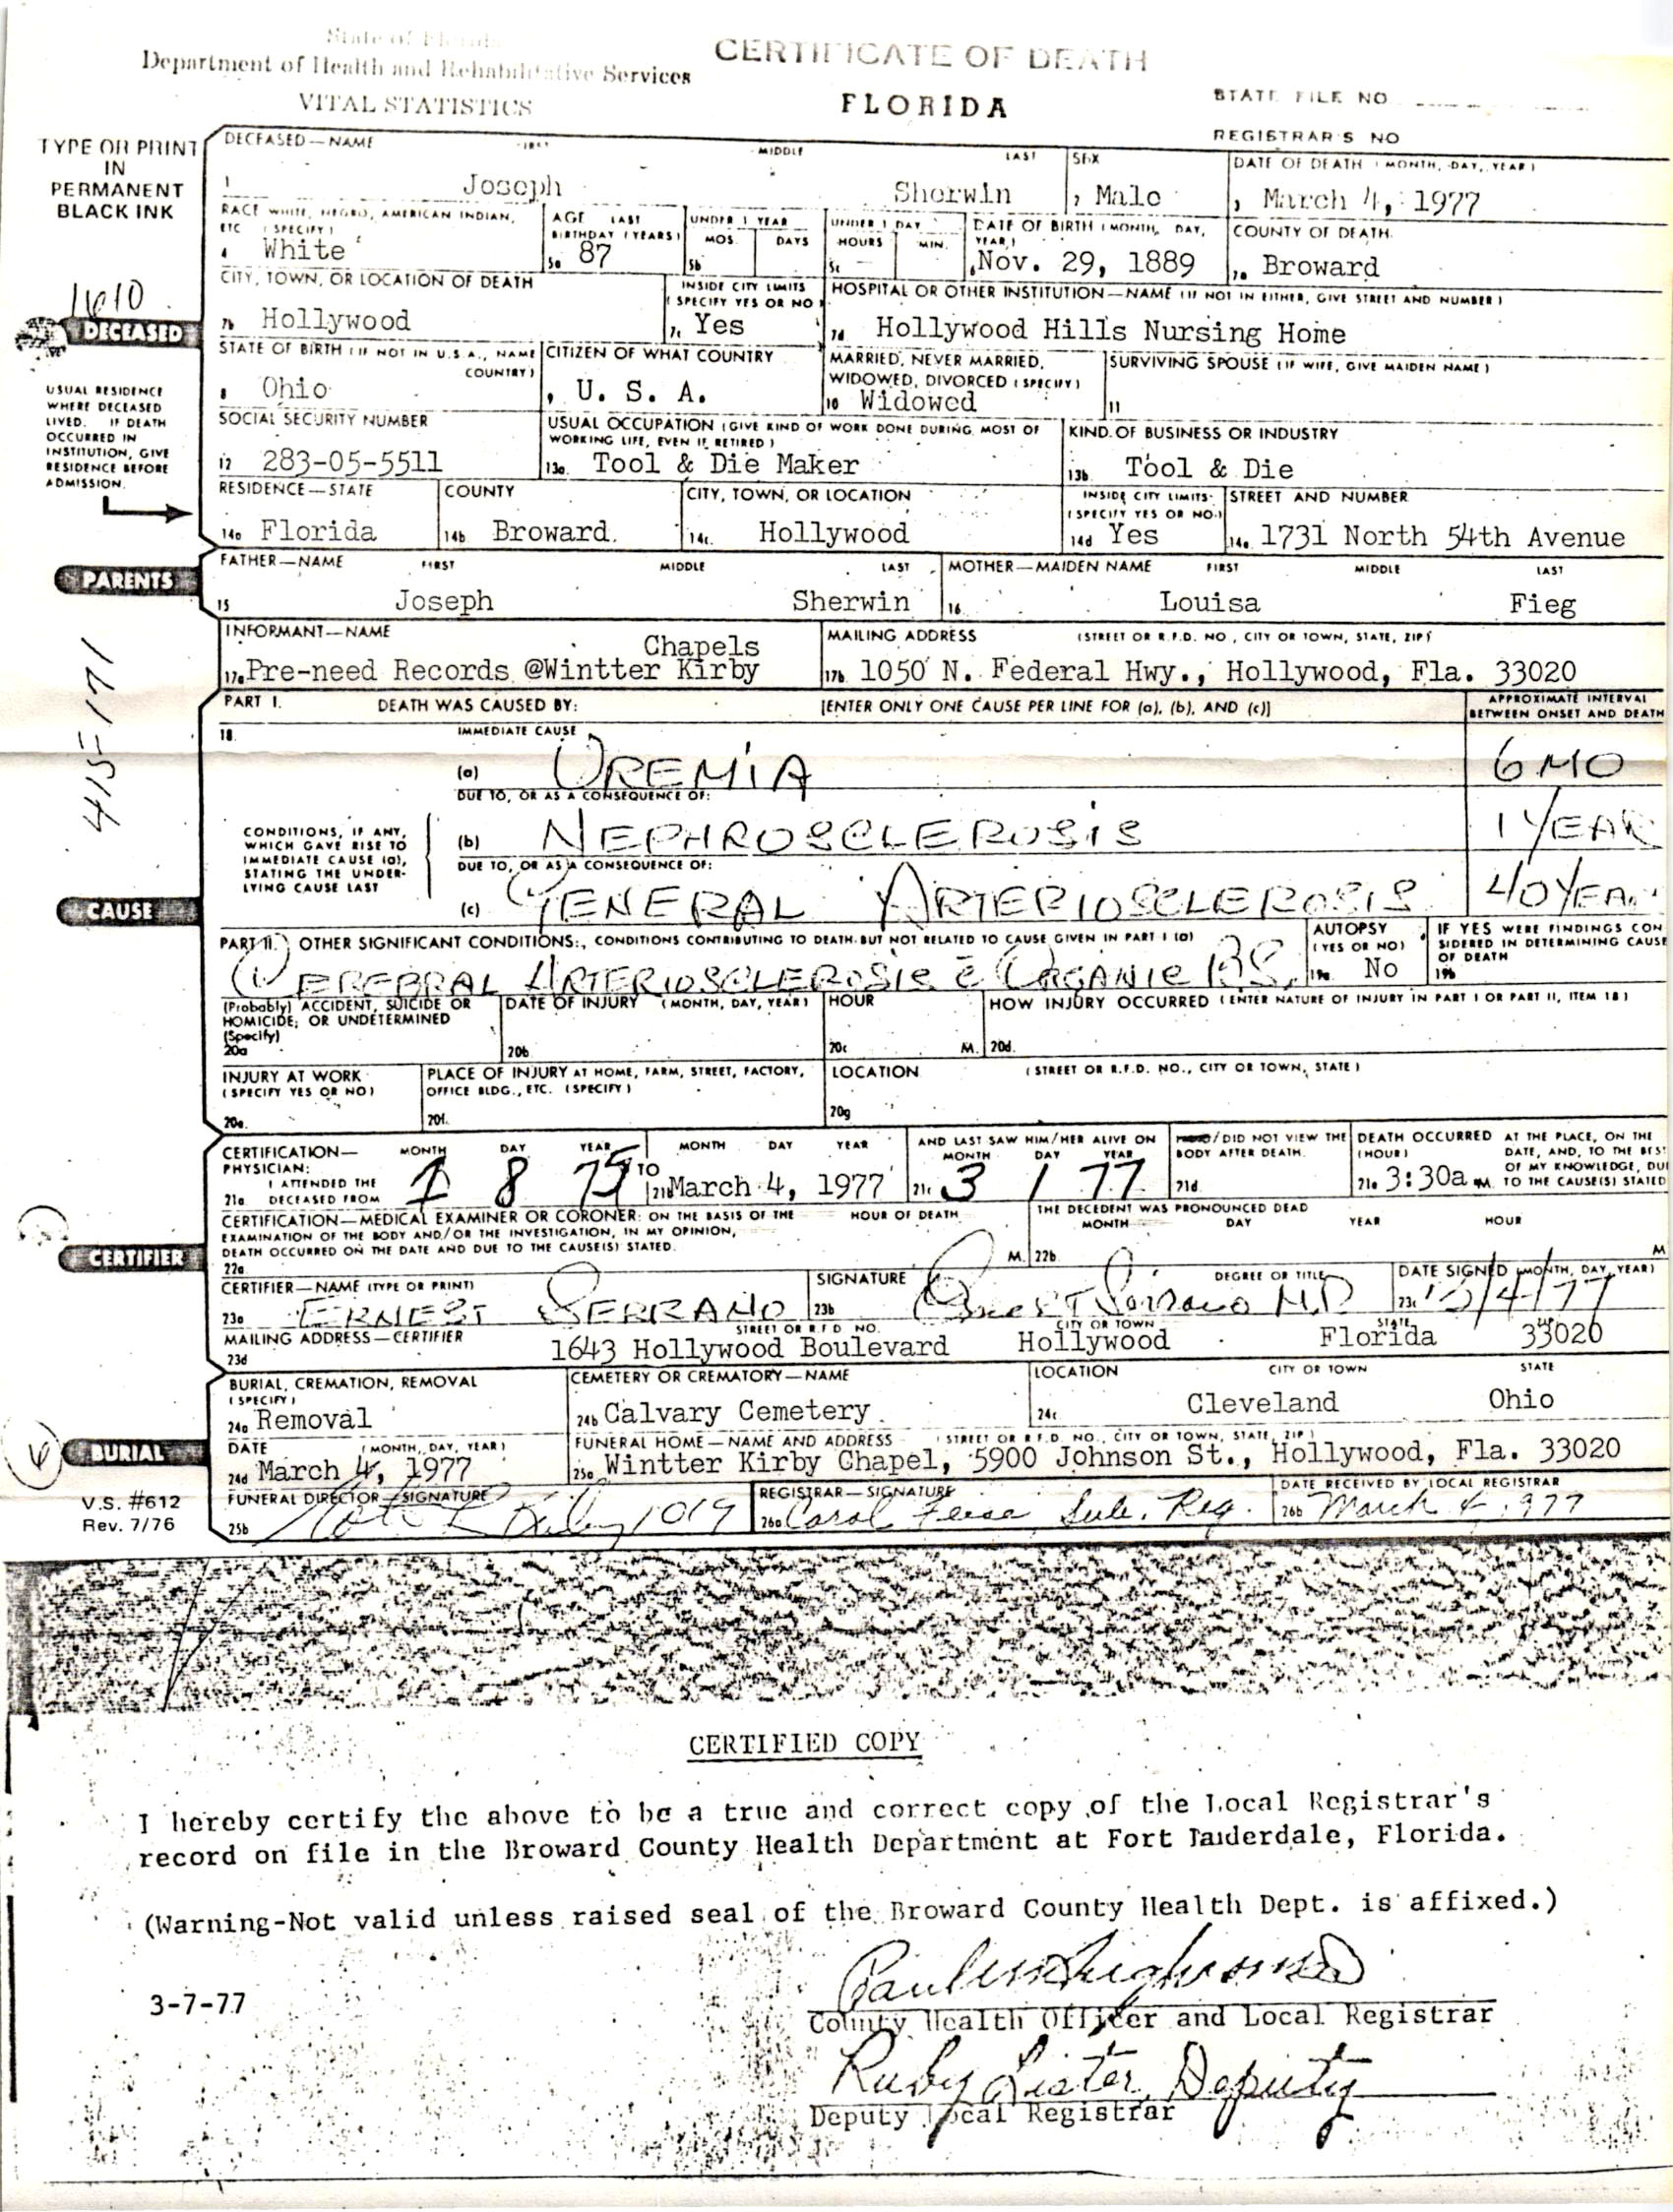 State of Florida
Department of Health and Rehabilitative Services
VITAL STATISTICS
CERTIFICATE OF DEATH
FLORIDA
STATE FILE NO.
REGISTRAR'S NO
TYPE OR PRINT
IN
PERMANENT
BLACK INK
DECEASED—NAME FIRST MIDDLE LAST
1 Joseph Sherwin
SEX
2 Male
DATE OF DEATH (MONTH, DAY, YEAR)
3 March 4, 1977
RACE WHITE, NEGRO, AMERICAN INDIAN,
ETC (SPECIFY)
4 White
AGE LAST
BIRTHDAY (YEARS)
5a 87
UNDER 1 YEAR
MOS. DAYS
5b
UNDER 1 DAY
HOURS MIN.
5c
DATE OF BIRTH (MONTH, DAY,
YEAR)
6 Nov. 29, 1889
COUNTY OF DEATH
7a Broward
1610
DECEASED
CITY, TOWN, OR LOCATION OF DEATH
7b Hollywood
INSIDE CITY LIMITS
(SPECIFY YES OR NO)
7c Yes
HOSPITAL OR OTHER INSTITUTION—NAME (IF NOT IN EITHER, GIVE STREET AND NUMBER)
7d Hollywood Hills Nursing Home
STATE OF BIRTH (IF NOT IN U.S.A., NAME
COUNTRY)
8 Ohio
CITIZEN OF WHAT COUNTRY
9 U. S. A.
MARRIED, NEVER MARRIED,
WIDOWED, DIVORCED (SPECIFY)
10 Widowed
SURVIVING SPOUSE (IF WIFE, GIVE MAIDEN NAME)
11
USUAL RESIDENCE
WHERE DECEASED
LIVED. IF DEATH
OCCURRED IN
INSTITUTION, GIVE
RESIDENCE BEFORE
ADMISSION.
SOCIAL SECURITY NUMBER
12 283-05-5511
USUAL OCCUPATION (GIVE KIND OF WORK DONE DURING MOST OF
WORKING LIFE, EVEN IF RETIRED)
13a Tool & Die Maker
KIND OF BUSINESS OR INDUSTRY
13b Tool & Die
RESIDENCE—STATE
14a Florida
COUNTY
14b Broward.
CITY, TOWN, OR LOCATION
14c Hollywood
INSIDE CITY LIMITS
(SPECIFY YES OR NO)
14d Yes
STREET AND NUMBER
14e 1731 North 54th Avenue
PARENTS
FATHER—NAME FIRST MIDDLE LAST
15 Joseph Sherwin
MOTHER—MAIDEN NAME FIRST MIDDLE LAST
16 Louisa Fieg
INFORMANT—NAME
Chapels
17a Pre-need Records @Wintter Kirby
MAILING ADDRESS (STREET OR R.F.D. NO., CITY OR TOWN, STATE, ZIP)
17b 1050 N. Federal Hwy., Hollywood, Fla. 33020
415-171
PART I. DEATH WAS CAUSED BY: [ENTER ONLY ONE CAUSE PER LINE FOR (a), (b), AND (c)]
APPROXIMATE INTERVAL
BETWEEN ONSET AND DEATH
18. IMMEDIATE CAUSE
(a) UREMIA 6 MO
DUE TO, OR AS A CONSEQUENCE OF:
CONDITIONS, IF ANY,
WHICH GAVE RISE TO
IMMEDIATE CAUSE (a),
STATING THE UNDER-
LYING CAUSE LAST
(b) NEPHROSCLEROSIS 1 YEAR
DUE TO, OR AS A CONSEQUENCE OF:
CAUSE
(c) GENERAL ARTERIOSCLEROSIS 40 YEA
PART II. OTHER SIGNIFICANT CONDITIONS: CONDITIONS CONTRIBUTING TO DEATH BUT NOT RELATED TO CAUSE GIVEN IN PART I (a)
CEREBRAL ARTERIOSCLEROSIS c̄ ORGANIC B.S.
AUTOPSY
(YES OR NO)
19a No
IF YES WERE FINDINGS CON
SIDERED IN DETERMINING CAUSE
OF DEATH
19b
(Probably) ACCIDENT, SUICIDE OR
HOMICIDE; OR UNDETERMINED
(Specify)
20a
DATE OF INJURY (MONTH, DAY, YEAR)
20b
HOUR
20c M.
HOW INJURY OCCURRED (ENTER NATURE OF INJURY IN PART I OR PART II, ITEM 18)
20d.
INJURY AT WORK
(SPECIFY YES OR NO)
20e.
PLACE OF INJURY AT HOME, FARM, STREET, FACTORY,
OFFICE BLDG., ETC. (SPECIFY)
20f.
LOCATION (STREET OR R.F.D. NO., CITY OR TOWN, STATE)
20g
CERTIFICATION— MONTH DAY YEAR
PHYSICIAN:
I ATTENDED THE
21a DECEASED FROM 1 8 75 TO
MONTH DAY YEAR
21b March 4, 1977
AND LAST SAW HIM/HER ALIVE ON
MONTH DAY YEAR
21c 3 1 77
/DID NOT VIEW THE
BODY AFTER DEATH.
21d
DEATH OCCURRED AT THE PLACE, ON THE
(HOUR) DATE, AND, TO THE BEST
OF MY KNOWLEDGE, DUE
21e 3:30a M. TO THE CAUSE(S) STATED
CERTIFIER
CERTIFICATION—MEDICAL EXAMINER OR CORONER: ON THE BASIS OF THE
EXAMINATION OF THE BODY AND/OR THE INVESTIGATION, IN MY OPINION,
DEATH OCCURRED ON THE DATE AND DUE TO THE CAUSE(S) STATED.
22a
HOUR OF DEATH
M.
THE DECEDENT WAS PRONOUNCED DEAD
MONTH DAY YEAR HOUR
22b M
CERTIFIER—NAME (TYPE OR PRINT)
23a ERNEST SERRANO
SIGNATURE DEGREE OR TITLE
23b Ernest Serrano M.D
DATE SIGNED (MONTH, DAY, YEAR)
23c /4/77
MAILING ADDRESS—CERTIFIER STREET OR R.F.D. NO. CITY OR TOWN STATE ZIP
23d 1643 Hollywood Boulevard Hollywood Florida 33020
BURIAL, CREMATION, REMOVAL
(SPECIFY)
24a Removal
CEMETERY OR CREMATORY—NAME
24b Calvary Cemetery
LOCATION CITY OR TOWN STATE
24c Cleveland Ohio
BURIAL
DATE (MONTH, DAY, YEAR)
24d March 4, 1977
FUNERAL HOME—NAME AND ADDRESS (STREET OR R.F.D. NO., CITY OR TOWN, STATE, ZIP)
25a Wintter Kirby Chapel, 5900 Johnson St., Hollywood, Fla. 33020
V.S. #612
Rev. 7/76
FUNERAL DIRECTOR—SIGNATURE
25b 1019
REGISTRAR—SIGNATURE
26a Carol Sub. Reg.
DATE RECEIVED BY LOCAL REGISTRAR
26b March 4, 1977
CERTIFIED COPY
I hereby certify the above to be a true and correct copy of the Local Registrar's
record on file in the Broward County Health Department at Fort Lauderdale, Florida.
(Warning-Not valid unless raised seal of the Broward County Health Dept. is affixed.)
3-7-77
County Health Officer and Local Registrar
Ruby Lister, Deputy
Deputy Local Registrar